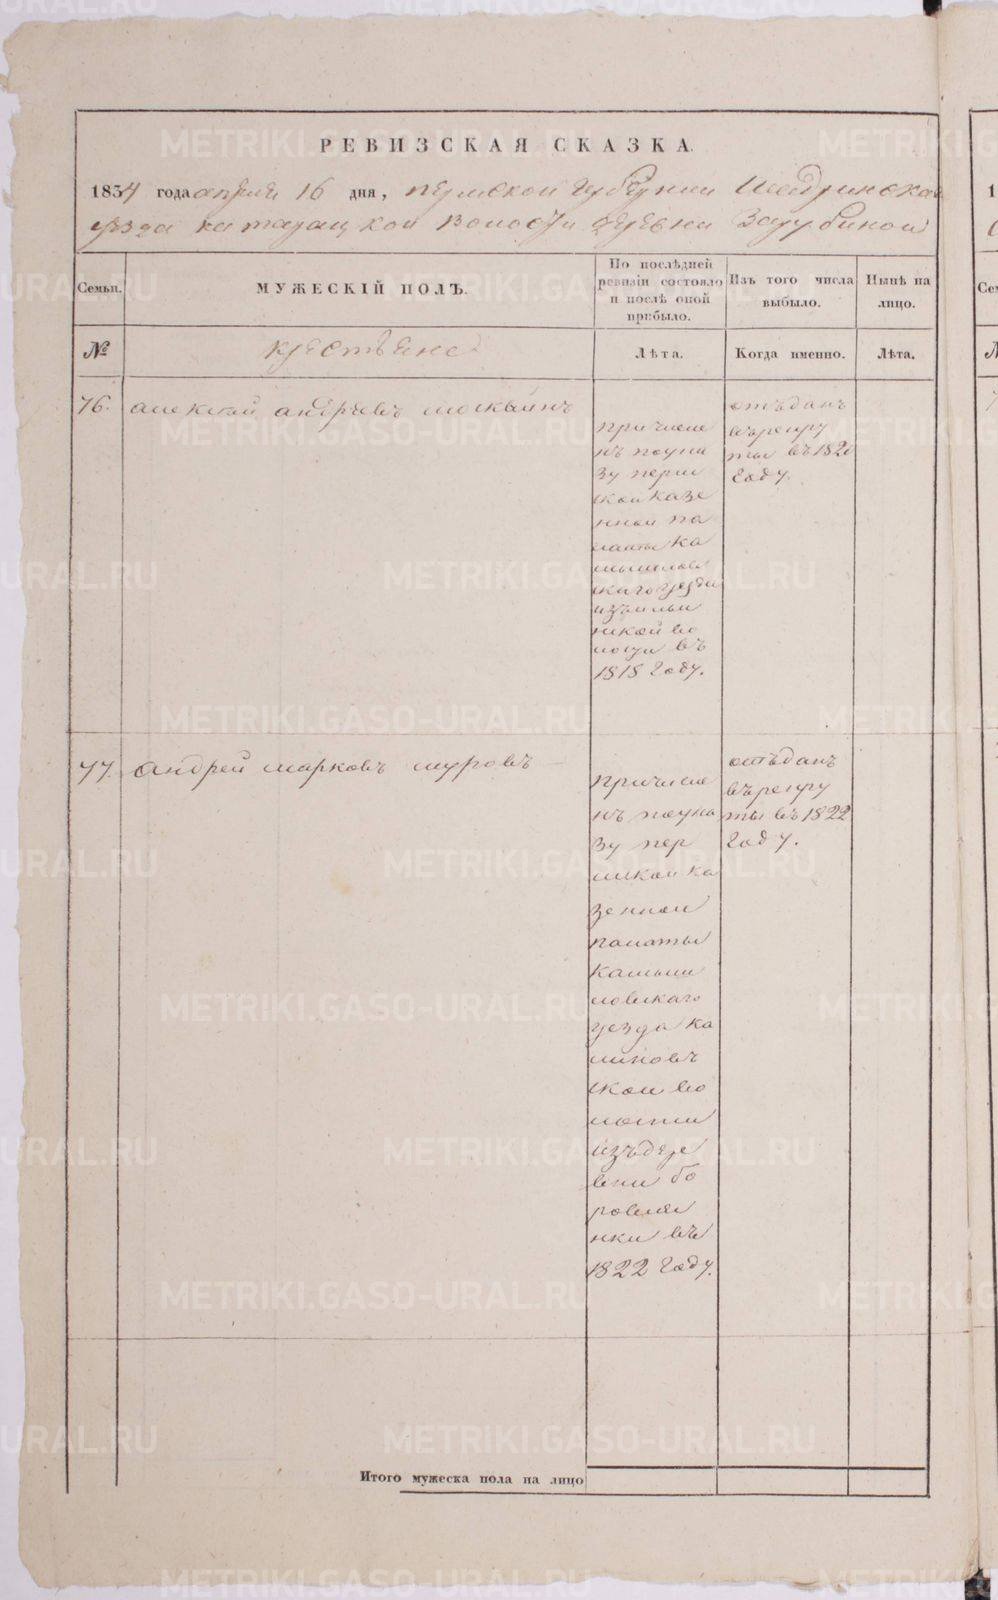 РЕВИЗСКАЯ СКАЗКА.
1834 года апреля 16 дня, Пермской губернии Шадринскаго
уезда катайской волости деревни Зазубиной
Семьи. МУЖЕСКІЙ ПОЛЪ. По послѣдней ревизіи состояло и послѣ оной прибыло. Изъ того числа выбыло. Нынѣ на лицо.
№ крестьяне Лѣта. Когда именно. Лѣта.
76. алексей андреевъ москвинъ
причисле
нъ поука
зу перм
ской казе
нной па
латы ка
мышлов
скаго уезда
изъ
ской во
лости въ
1818 году.
отъданъ
въ рекру
ты въ 1820
году.
77. андрей марковъ шуровъ
причисле
нъ поука
зу пер
мской ка
зенной
палаты
камыш
ловскаго
уезда ка
линовъ
ской во
лости
изъ дере
вни бо
ровлян
нки въ
1822 году.
отъданъ
въ рекру
ты въ 1822
году.
Итого мужеска пола на лицо
METRIKI.GASO-URAL.RU